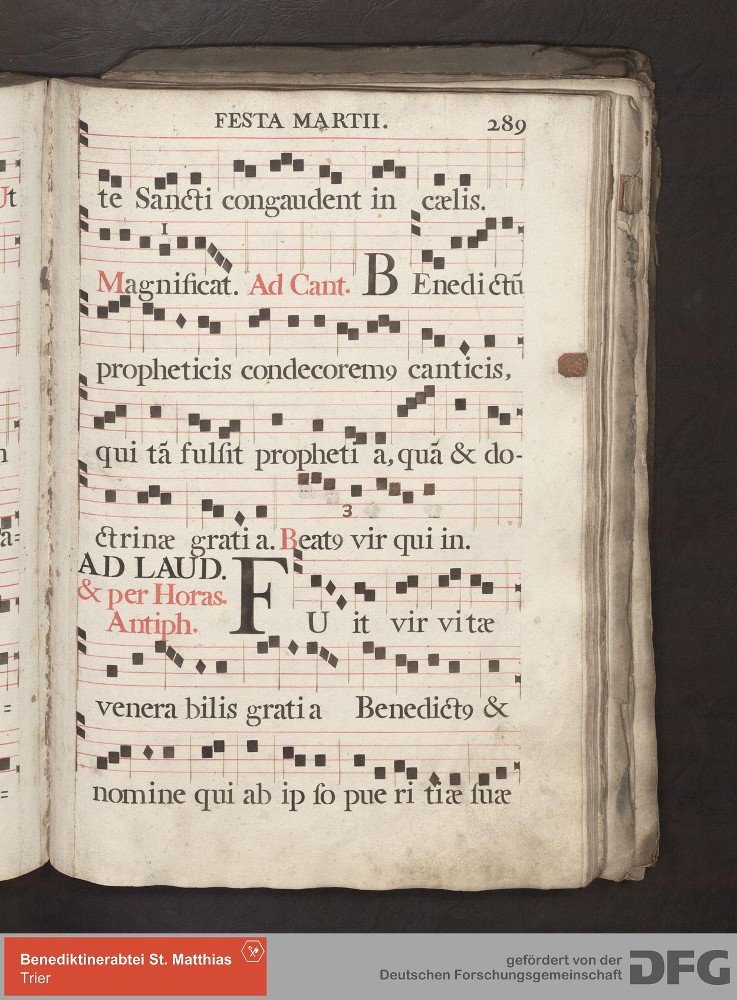 FESTA MARTII. 289
te Sancti congaudent in cælis.
1
Magnificat. Ad Cant. B Enedictũ
propheticis condecoremꝰ canticis,
qui tã fulsit propheti a, quã & do-
3
ctrinæ grati a. Beatꝰ vir qui in.
AD LAUD.
& per Horas.
Antiph.
F U it vir vi tæ
venera bilis grati a Benedictꝰ &
nomine qui ab ip so pue ri tiæ suæ
Ut
a=
=
=
Benediktinerabtei St. Matthias
Trier
gefördert von der
Deutschen Forschungsgemeinschaft
DFG